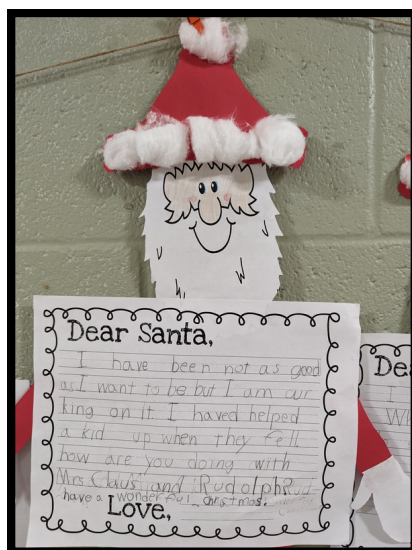 Dear Santa,
I have been not as good
as I want to be but I am cur
king on it I haved helped
a kid up when they fell
how are you doing with
Mrs Claus and Rudolph
have a wonderful christmas.
Love,
Dea
I
Wh